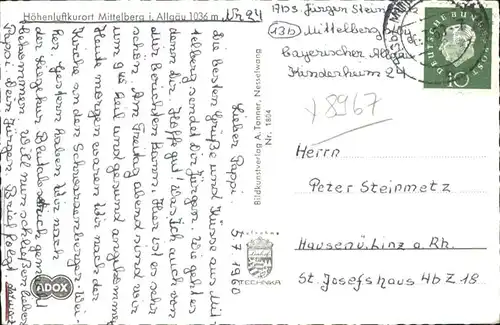 Höhenluftkurort Mittelberg i. Allgäu 1036 m
Nr 24
Abs. Jürgen Steinmetz
(13b) Mittelberg
Bayerischer Allgäu
Kinderheim 24
DEUTSCHE BUNDESPOST
10
Y 8967
Herrn
Peter Steinmetz
Hausen ü. Linz a. Rh.
St. Josefshaus Abt. Z 18
Bildkunstverlag A. Tanner, Nesselwang
Nr. 1804
TECHNIKA
ADOX
5 7 1960
Lieber Pappi.
Die besten Grüße und Küsse aus Mit-
telberg sendet Dir Jürgen. Wie geht es
denn Dir? Hoffe gut! Was Ich auch von
mir Berichten kann. Hier ist es sehr
schön. Am Freitag abend sind wir
um 9 Heil und gesund angekommen
Heute morgen waren Wir nach der
Kirche an den Schwarzenberger Wei-
her. Gestern haben Wir nach
der Liegekur Blutabdruck gemacht
bekommen. Will nun schließen lieber
Pappi. Dein Jürgen Brief folgt